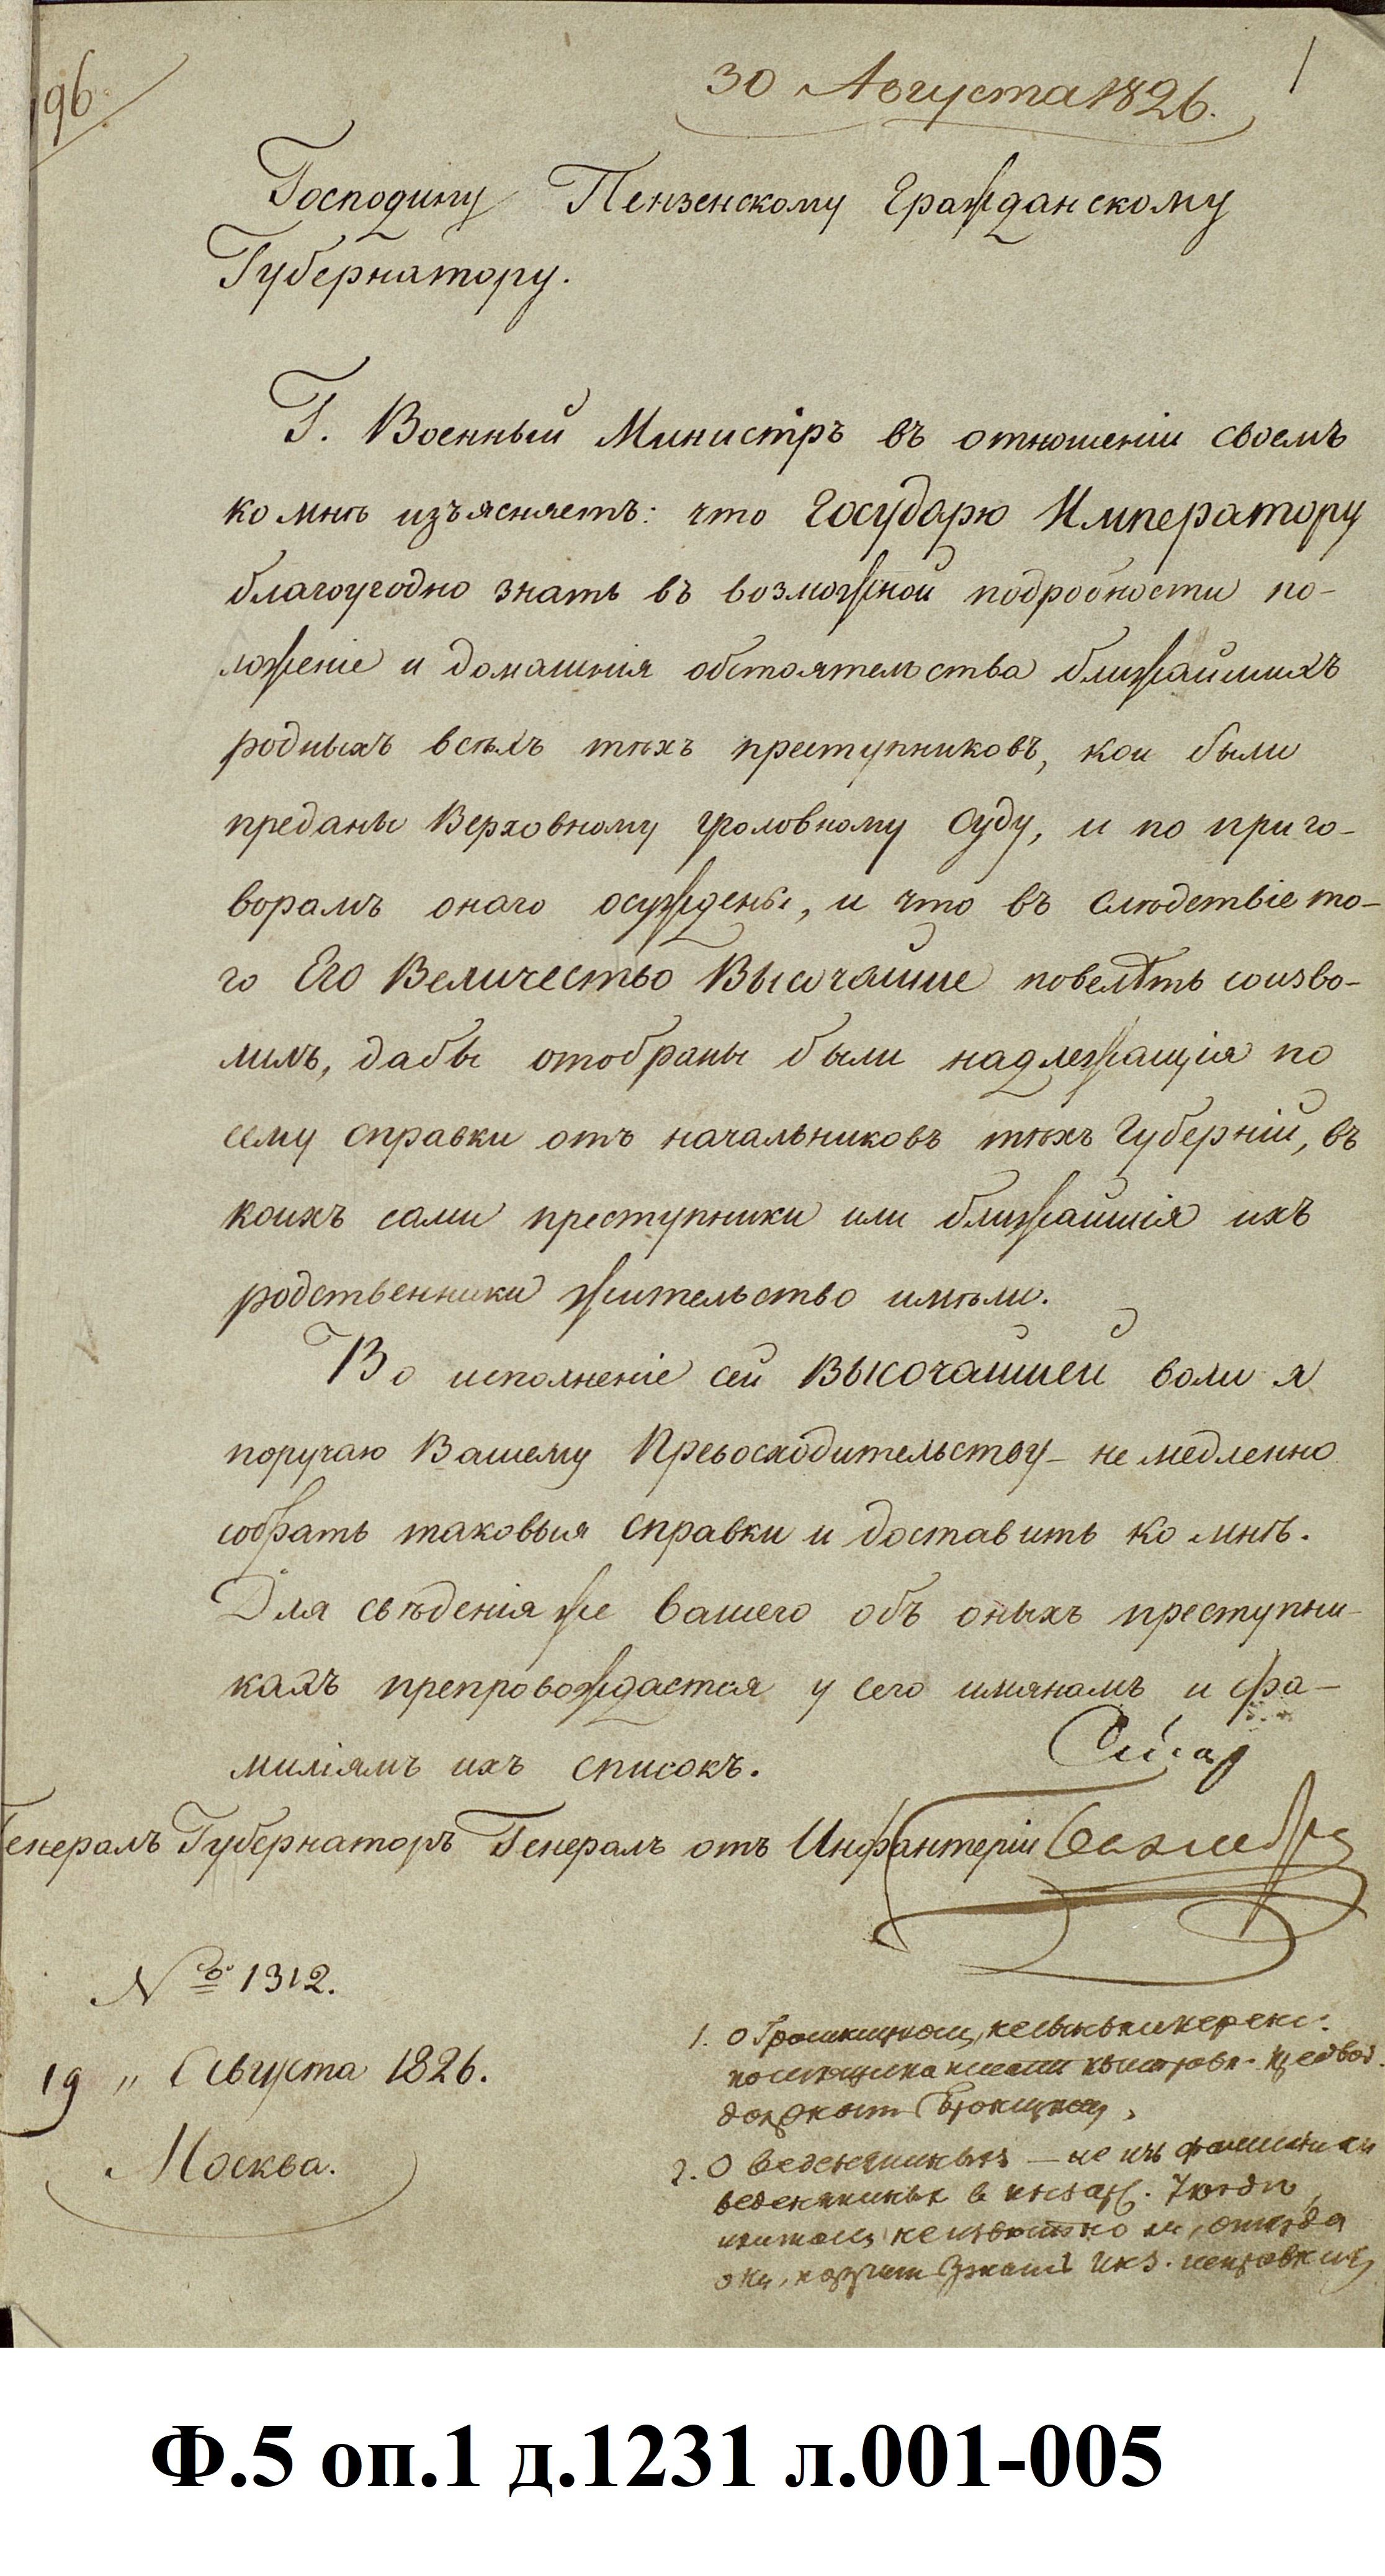 96
30 Августа 1826.
Господину Пензенскому Гражданскому
Губернатору.
Г. Военный Министръ въ отношеніи своемъ
ко мнѣ изъясняетъ: что Государю Императору
благоугодно знать въ возможной подробности по-
ложеніе и домашнія обстоятельства ближайшихъ
родныхъ всѣхъ тѣхъ преступниковъ, кои были
преданы Верховному уголовному Суду, и по приго-
ворамъ онаго осуждены, и что въ слѣдствіе то-
го Его Величество Высочайше повелѣть соизво-
лилъ, дабы отобраны были надлежащія по
сему справки отъ начальниковъ тѣхъ Губерній, въ
коихъ сами преступники или ближайшія ихъ
родственники жительство имѣли.
Во исполненіе сей Высочайшей воли я
поручаю Вашему Превосходительству немедленно
собрать таковыя справки и доставить ко мнѣ.
Для свѣденія же вашего объ оныхъ преступни-
кахъ препровождается у сего имянамъ и фа-
миліямъ ихъ списокъ.
Генералъ Губернаторъ Генералъ отъ Инфантеріи Бахметев
№ 1312.
19 „ Августа 1826.
Москва.
1. О
2. О Веденяпиныхъ — не изъ фамиліи ли
Ф.5 оп.1 д.1231 л.001-005